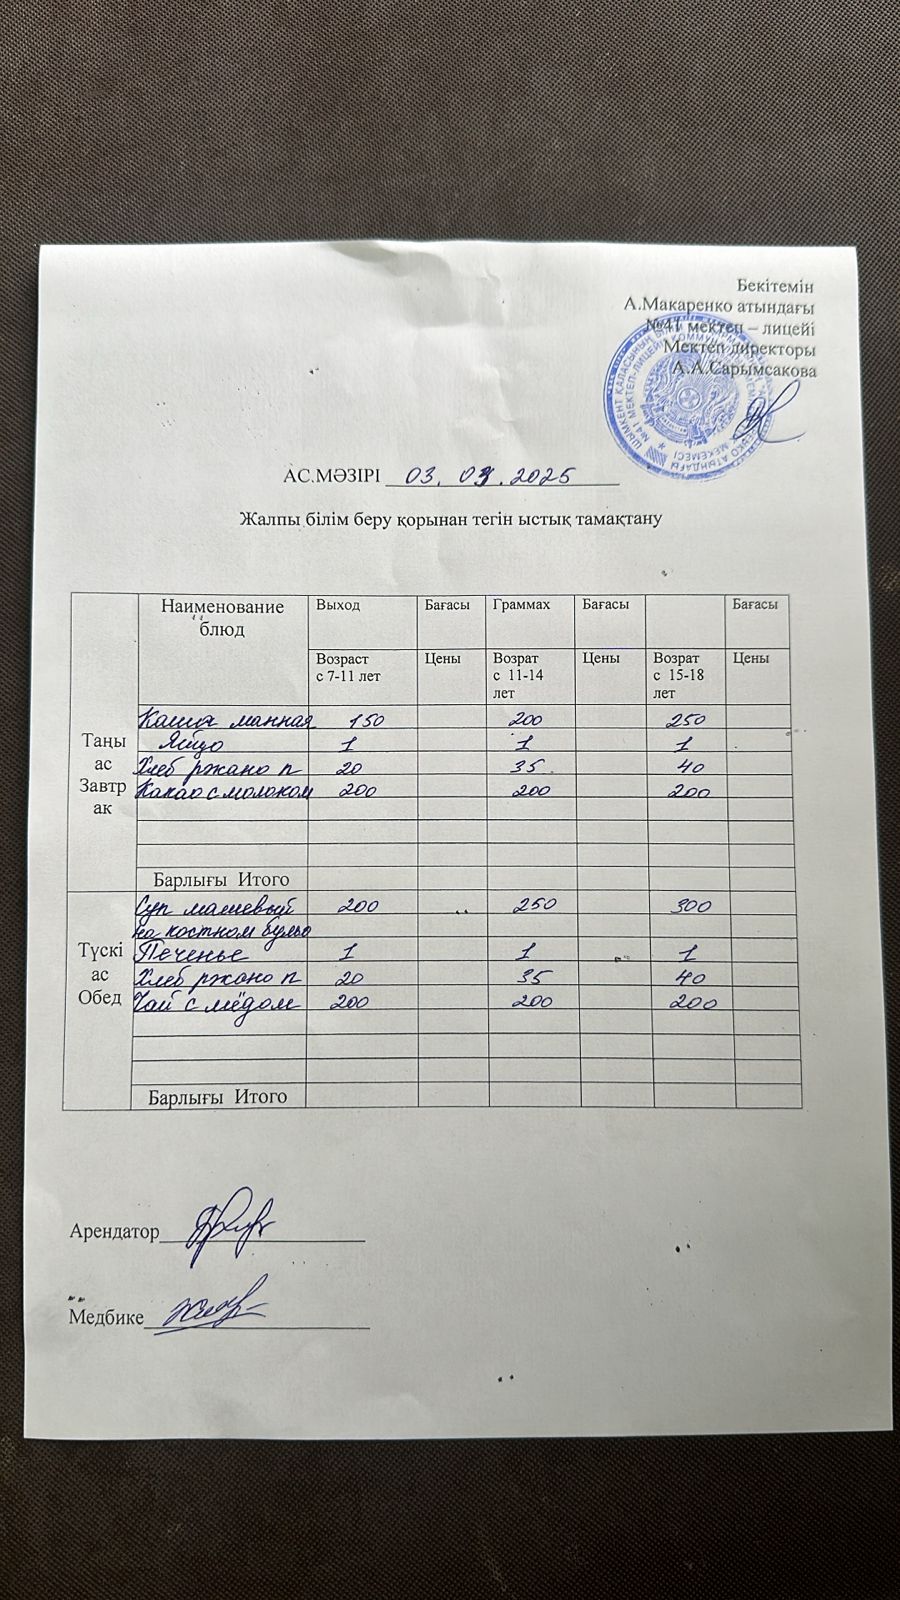 Бекітемін
А.Макаренко атындағы
№41 мектеп – лицейі
Мектеп директоры
А.А.Сарымсакова
АС.МӘЗІРІ 03. 03. 2025
Жалпы білім беру қорынан тегін ыстық тамақтану
Наименование блюд Выход Бағасы Граммах Бағасы Бағасы
Возраст с 7-11 лет Цены Возрат с 11-14 лет Цены Возрат с 15-18 лет Цены
Таңы ас Завтр ак
Каша манная 150 200 250
Яйцо 1 1 1
Хлеб ржано п 20 35 40
Какао с молоком 200 200 200
Барлығы Итого
Түскі ас Обед
Суп машевый 200 250 300
на костном бульо
Печенье 1 1 1
Хлеб ржано п 20 35 40
Чай с мёдом 200 200 200
Барлығы Итого
Арендатор
Медбике